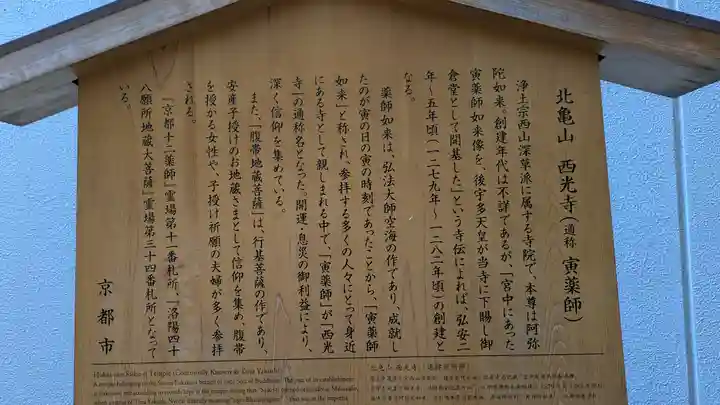 北亀山 西光寺(通称 寅薬師)
浄土宗西山深草派に属する寺院で、本尊は阿弥
陀如来。創建年代は不詳であるが、「宮中にあった
寅薬師如来像を、後宇多天皇が当寺に下賜し御
倉堂として開基した」という寺伝によれば、弘安二
年~五年頃(一二七九年~一二八二年頃)の創建と
なる。
薬師如来は、弘法大師空海の作であり、成就し
たのが寅の日の寅の時刻であったことから、「寅薬師
如来」と称され、参拝する多くの人々にとって身近
にある寺として親しまれる中で、「寅薬師」が「西光
寺」の通称名となった。開運・息災の御利益により、
深く信仰を集めている。
また、「腹帯地蔵菩薩」は、行基菩薩の作であり、
安産子授けのお地蔵さまとして信仰を集め、腹帯
を授かる女性や、子授け祈願の夫婦が多く参拝
される。
『京都十二薬師』霊場第十一番札所、『洛陽四十
八願所地蔵大菩薩』霊場第三十四番札所となって
いる。
京都市
Temple (Commonly Known as Tora Yakushi)
北亀山 西光寺